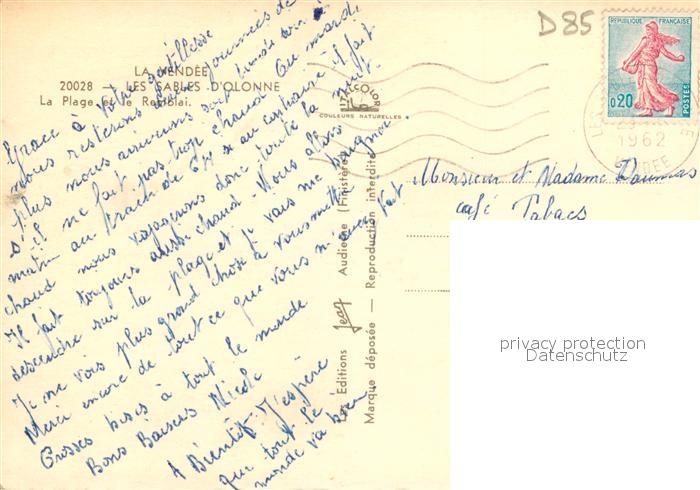 D85
LA VENDÉE
20028 LES SABLES D'OLONNE
La Plage et le Remblai.
ITALCOLOR
COULEURS NATURELLES
REPUBLIQUE FRANÇAISE
0,20
POSTES
1962
Grace à votre gentillesse
nous resterons journées de
plus nous arriverons soir
s'il ne fait pas trop chaud Ou mardi
matin au train de 6H si au contraire il fait
chaud nous voyagerons donc toute la nuit.
Il fait toujours aussi chaud Nous allons
descendre sur la plage et je vais me baigner
Je ne vois plus grand chose à vous mettre
Merci encore de tout ce que vous m'avez fait
Grosses bises à tout le monde
Bons Baisers Nicole
A Bientôt J'espère
que tout le
monde va bien.
Les Editions Jean Audierne (Finistère)
Marque déposée — Reproduction interdite
Monsieur et Madame Daumas
Café Tabacs
privacy protection
Datenschutz